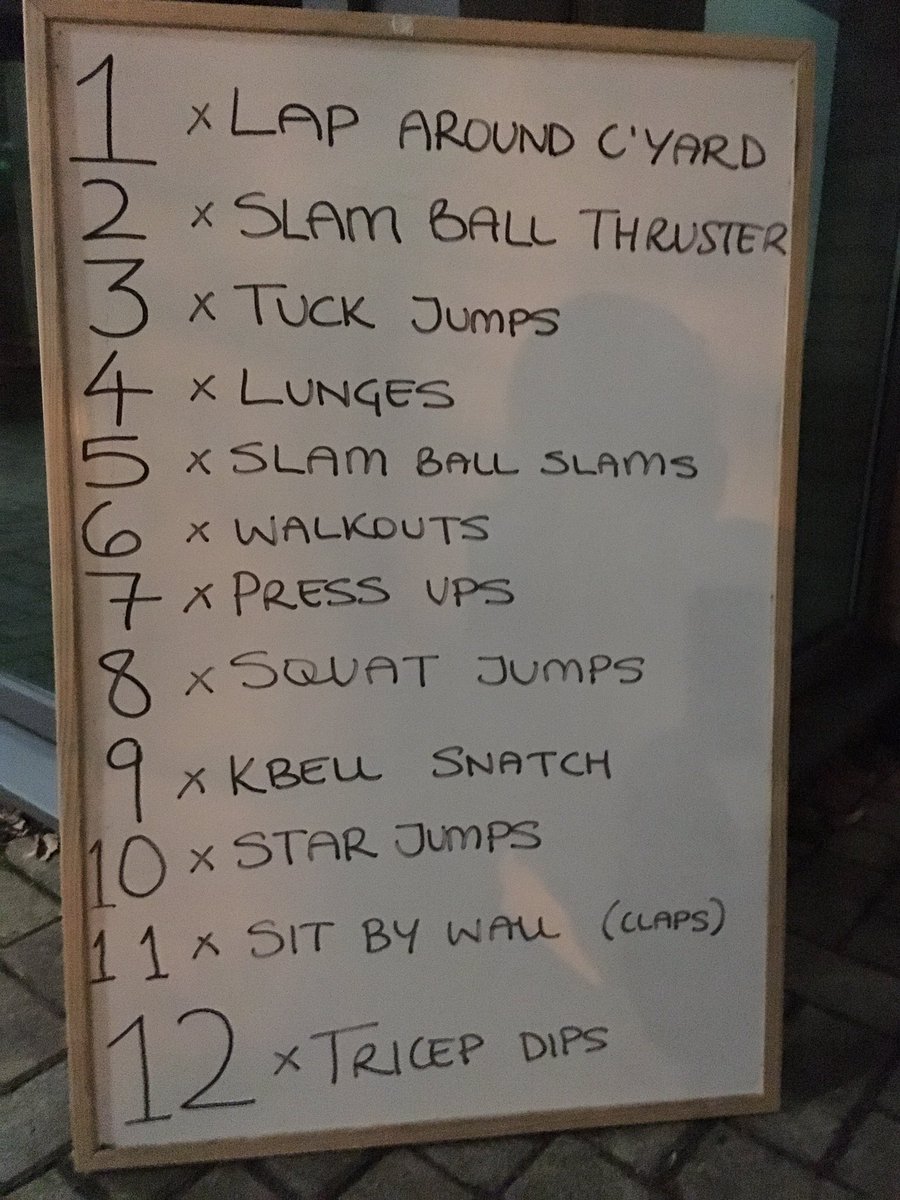 1 x LAP AROUND C'YARD
2 x SLAM BALL THRUSTER
3 x TUCK JUMPS
4 x LUNGES
5 x SLAM BALL SLAMS
6 x WALKOUTS
7 x PRESS UPS
8 x SQUAT JUMPS
9 x KBELL SNATCH
10 x STAR JUMPS
11 x SIT BY WALL (CLAPS)
12 x TRICEP DIPS